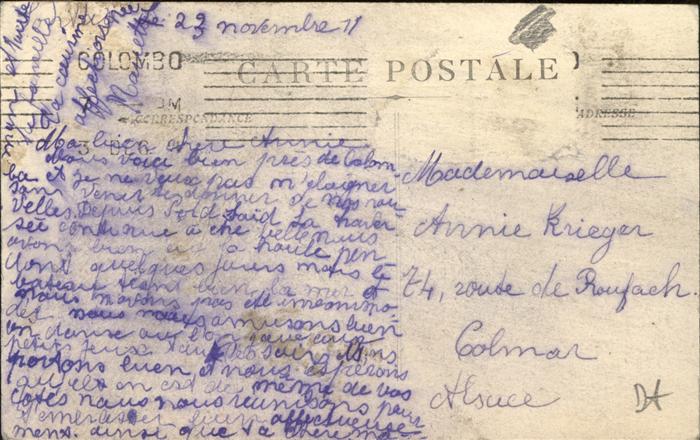 22 novembre 11
COLOMBO
CARTE POSTALE
CORRESPONDANCE
ADRESSE
Ma bien chère Annie
Nous voici bien près de Colom-
bo et je ne veux pas m'éloigner
sans venir te donner de nos nou-
velles. Depuis Port Saïd la traver
sée continue à être belle nous
avons bien eu la houle pen
dant quelques jours mais le
bateau tient bien la mer et
nous n'avons pas été
nous nous amusons bien
on danse au
petits jeux tous les soirs. Nous
portons bien et nous espérons
qu'il en est de même de vos
côtés nous nous réunissons pour
t'embrasser bien affectueuse-
ment ainsi que ta chère ma-
man et toute
ta famille
Ta cousine
affectionnée
Mademoiselle
Annie Krieger
74, route de Roufach
Colmar
Alsace